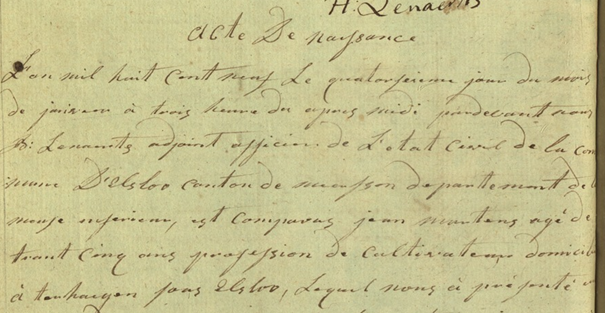 H: Lenaerts
acte De nayssance
L'an mil huit cent neuf Le quatorsieme jour du mois
de janvier à trois heure du apres midi pardevant nous
H: Lenaerts adjoint officier de L'etat Civil de la com
mune D'elsloo canton de meerssen departement de
meuse inferieur, est Comparus jean martens agé de
trant Cinq ans profession de Cultivateur domicil
à terhaegen sous Elsloo, Lequel nous à présenté